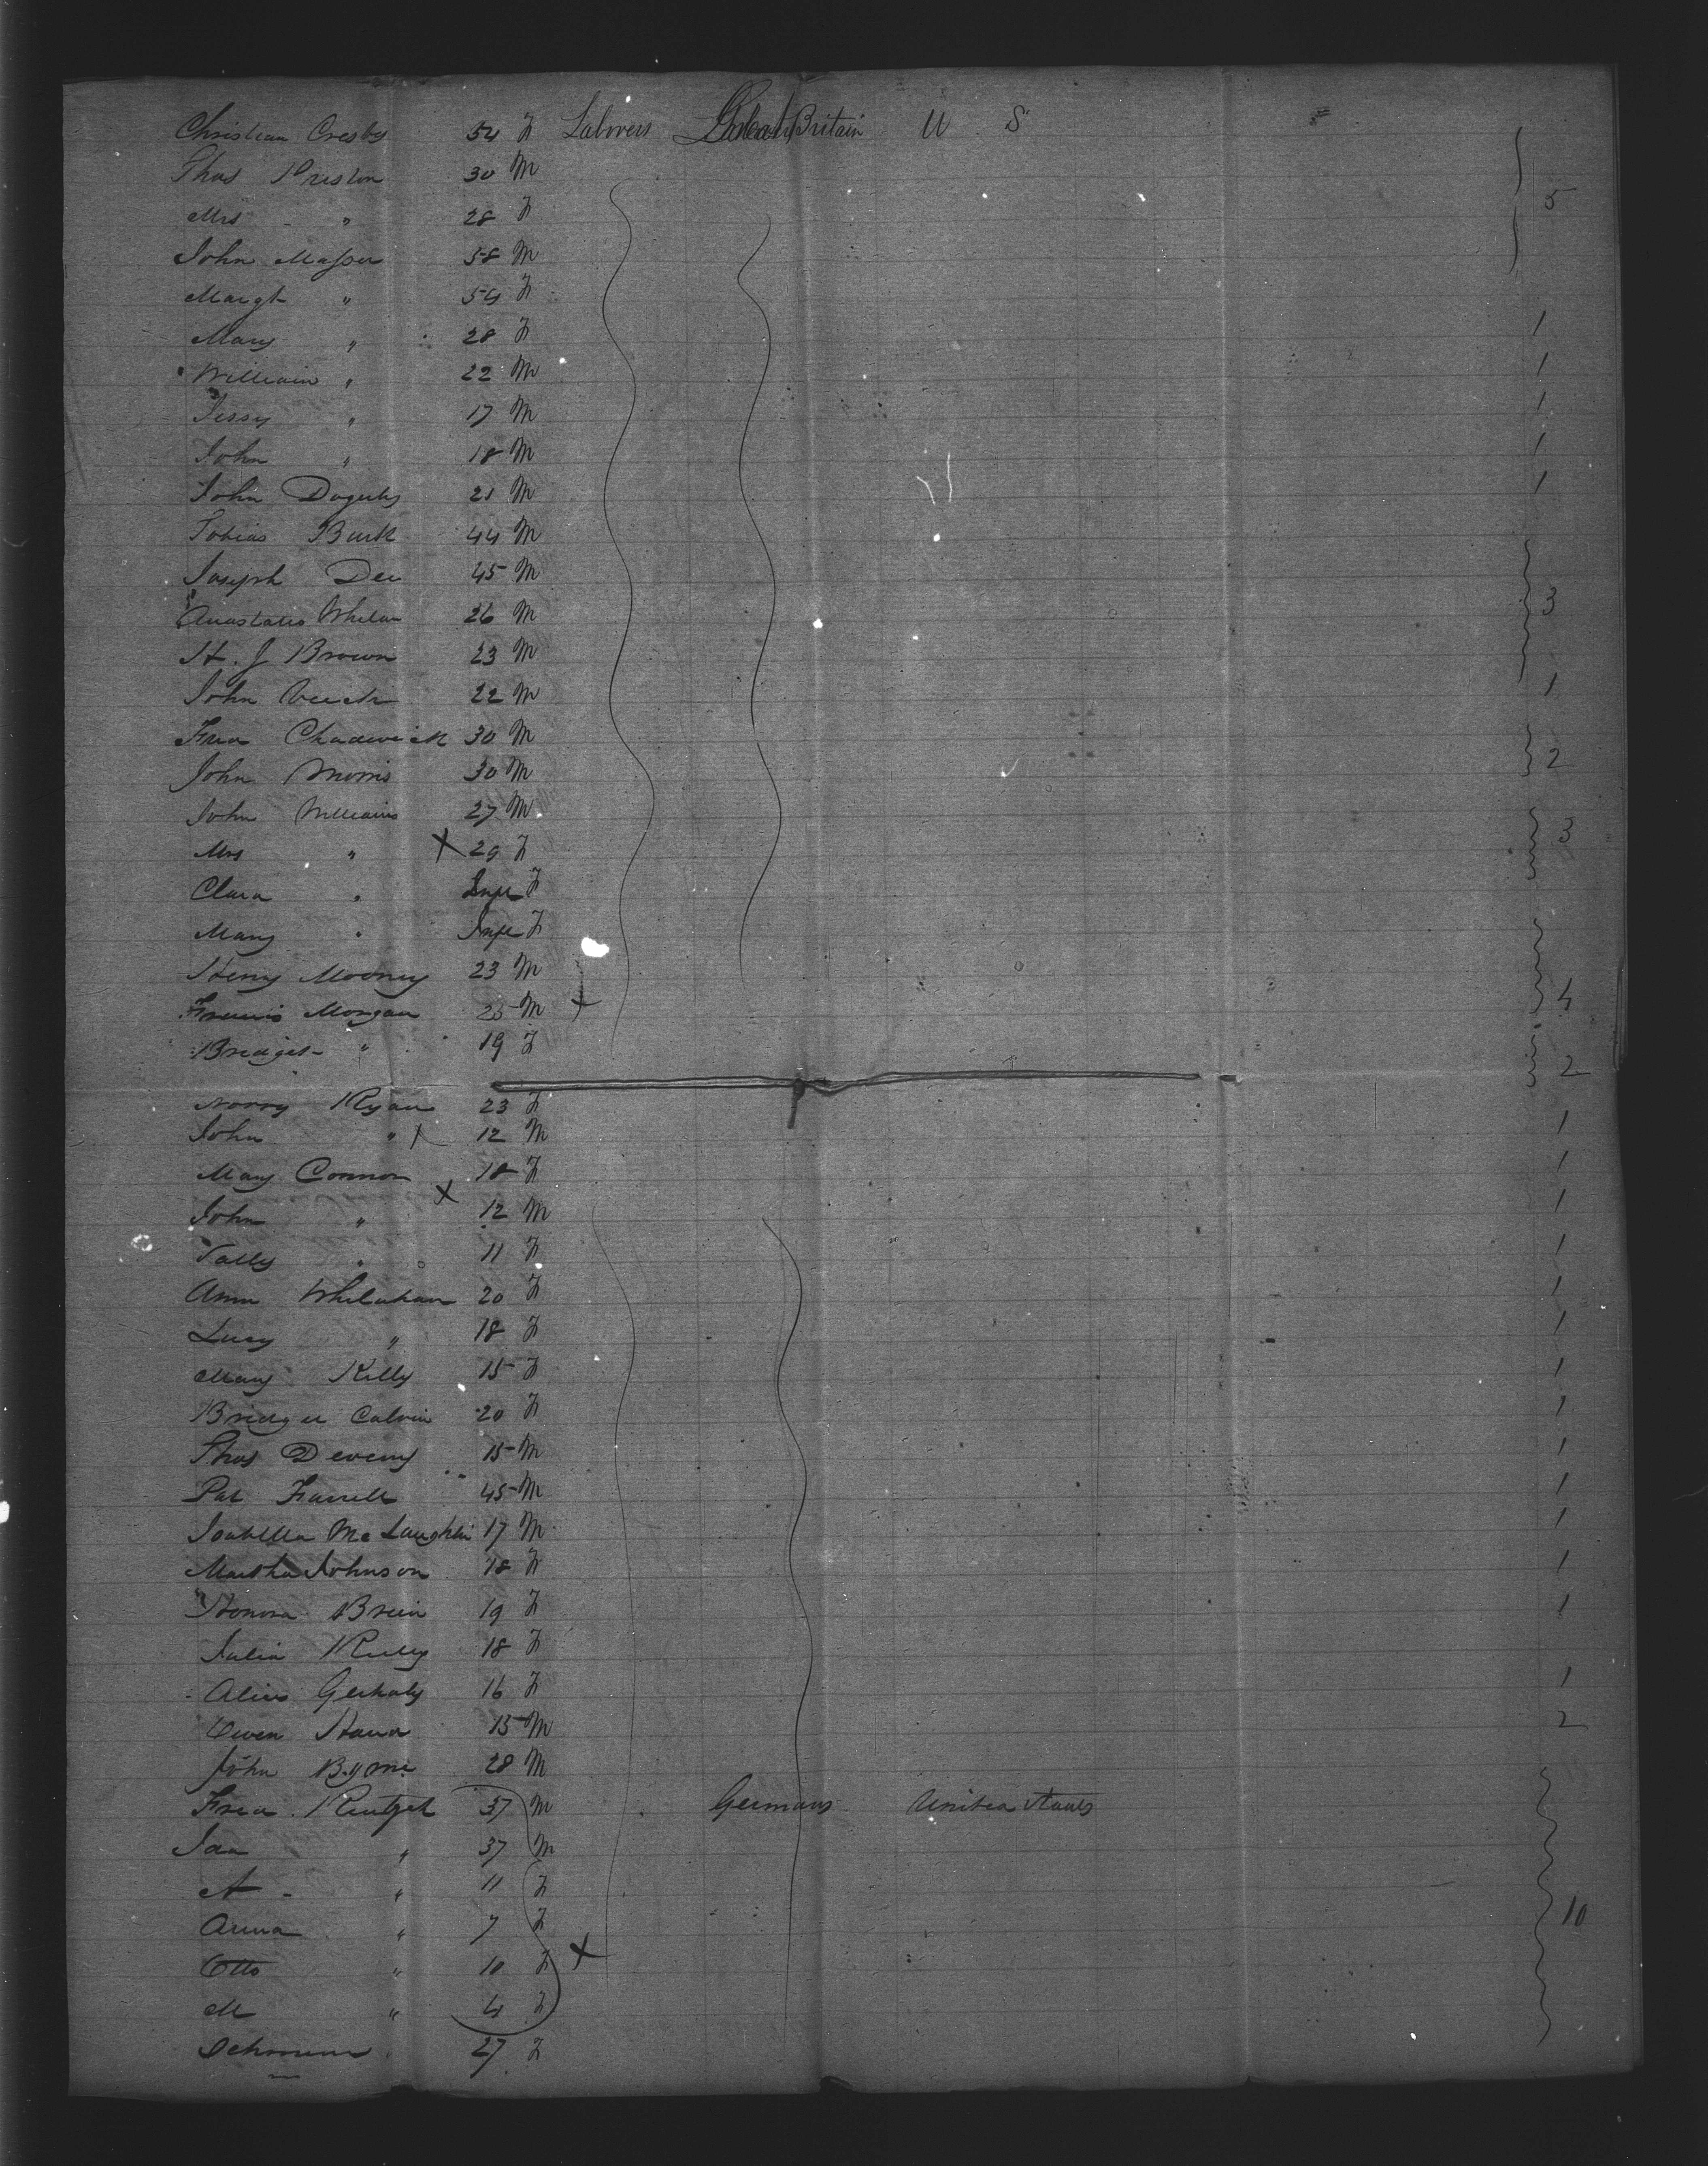 Christian Cresby 54 F Laborers Great Britain U S
Thos Preston 30 M
Mrs " 28 F 5
John Masser 58 M
Margt " 54 F
Mary " 28 F 1
William " 22 M 1
Jessy " 17 M 1
John " 18 M 1
John Dogerty 21 M 1
Tobias Burk 44 M
Joseph Dee 45 M
Whelan 26 M 3
H. J Brown 23 M
John 22 M 1
Chadwick 30 M
John Morris 30 M 2
John Williams 27 M
Mrs " X 29 F 3
Clara " Inft F
Mary " Inft F
Henry Mooney 23 M
Francis Morgan 25 M X 4
Bridget " 19 F 2
Norry Ryan 23 F
John " X 12 M 1
Mary Connor 18 F 1
John " X 12 M 1
" 11 F 1
Ann Whelahan 20 F 1
Lucy " 18 F 1
Mary Kelly 15 F 1
Bridget Calvin 20 F 1
Thos Deveny 15 M 1
Pat Farrell 45 M 1
Isabella McLaughlin 17 M 1
Martha Johnson 18 F 1
Honora Brien 19 F 1
Julia 18 F
16 F 1
Owen 15 M 2
John Byrne 28 M
37 M Germans United States
Ida " 37 M
A " 11 F
Anna " 7 F 10
Otto " 10 F X
M " 4 F
27 F